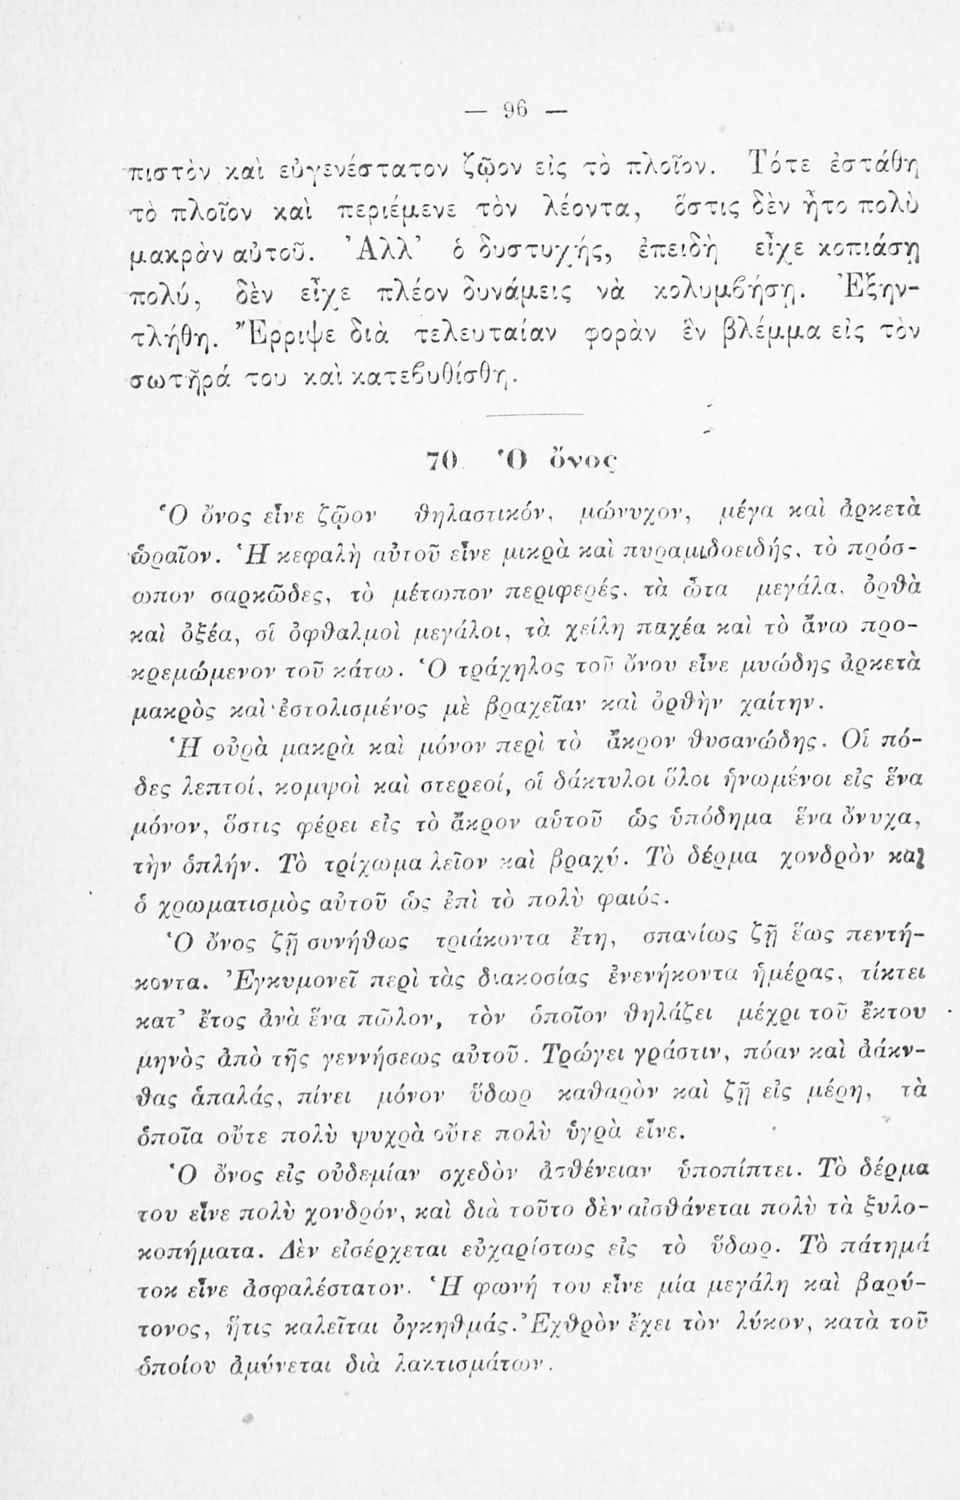 — 96 —
πιστὸν καὶ εὐγενέστατον ζῷον εἰς τὸ πλοῖον. Τότε ἐστάθη
τὸ πλοῖον καὶ περιέμενε τὸν λέοντα, ὅστις δὲν ἦτο πολὺ
μακρὰν αὐτοῦ. Ἀλλ' ὁ δυστυχής, ἐπειδὴ εἶχε κοπιάσῃ
πολύ, δὲν εἶχε πλέον δυνάμεις νὰ κολυμβήσῃ. Ἐξην-
τλήθη. Ἔρριψε διὰ τελευταίαν φορὰν ἓν βλέμμα εἰς τὸν
σωτῆρά του καὶ κατεβυθίσθη.
70 Ὁ ὄνος
Ὁ ὄνος εἶνε ζῷον θηλαστικόν, μώνυχον, μέγα καὶ ἀρκετὰ
ὡραῖον. Ἡ κεφαλὴ αὐτοῦ εἶνε μικρὰ καὶ πυραμιδοειδής, τὸ πρόσ-
ωπον σαρκῶδες, τὸ μέτωπον περιφερές, τὰ ὦτα μεγάλα, ὀρθὰ
καὶ ὀξέα, οἱ ὀφθαλμοὶ μεγάλοι, τὰ χείλη παχέα καὶ τὸ ἄνω προ-
κρεμώμενον τοῦ κάτω. Ὁ τράχηλος τοῦ ὄνου εἶνε μυώδης ἀρκετὰ
μακρὸς καὶ ἐστολισμένος μὲ βραχεῖαν καὶ ὀρθὴν χαίτην.
Ἡ οὐρὰ μακρὰ καὶ μόνον περὶ τὸ ἄκρον θυσανώδης. Οἱ πό-
δες λεπτοί, κομψοὶ καὶ στερεοί, οἱ δάκτυλοι ὅλοι ἡνωμένοι εἰς ἕνα
μόνον, ὅστις φέρει εἰς τὸ ἄκρον αὑτοῦ ὡς ὑπόδημα ἕνα ὄνυχα,
τὴν ὁπλήν. Τὸ τρίχωμα λεῖον καὶ βραχύ. Τὸ δέρμα χονδρὸν καὶ
ὁ χρωματισμὸς αὐτοῦ ὡς ἐπὶ τὸ πολὺ φαιός.
Ὁ ὄνος ζῇ συνήθως τριάκοντα ἔτη, σπανίως ζῇ ἕως πεντή-
κοντα. Ἐγκυμονεῖ περὶ τὰς διακοσίας ἐνενήκοντα ἡμέρας, τίκτει
κατ' ἔτος ἀνὰ ἕνα πῶλον, τὸν ὁποῖον θηλάζει μέχρι τοῦ ἕκτου
μηνὸς ἀπὸ τῆς γεννήσεως αὐτοῦ. Τρώγει γράστιν, πόαν καὶ ἀάκν-
θας ἁπαλάς, πίνει μόνον ὕδωρ καθαρὸν καὶ ζῇ εἰς μέρη, τὰ
ὁποῖα οὔτε πολὺ ψυχρὰ οὔτε πολὺ ὑγρὰ εἶνε.
Ὁ ὄνος εἰς οὐδεμίαν σχεδὸν ἀσθένειαν ὑποπίπτει. Τὸ δέρμα
του εἶνε πολὺ χονδρόν, καὶ διὰ τοῦτο δὲν αἰσθάνεται πολὺ τὰ ξυλο-
κοπήματα. Δὲν εἰσέρχεται εὐχαρίστως εἰς τὸ ὕδωρ. Τὸ πάτημά
τοκ εἶνε ἀσφαλέστατον. Ἡ φωνή του εἶνε μία μεγάλη καὶ βαρύ-
τονος, ἥτις καλεῖται ὀγκηθμάς. Ἐχθρὸν ἔχει τὸν λύκον, κατὰ τοῦ
ὁποίου ἀμύνεται διὰ λακτισμάτων.